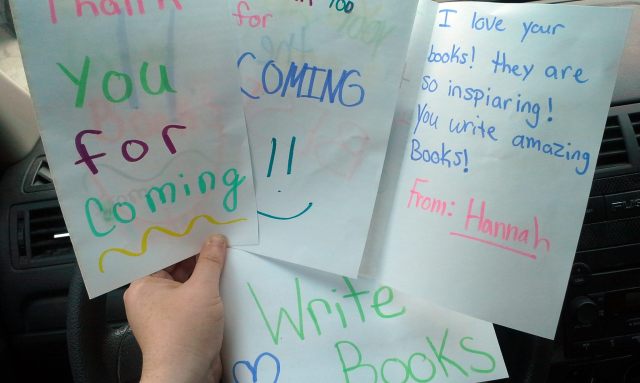 Thank
you
for
coming
for
COMING
!!
I love your
books! they are
so inspiaring!
you write amazing
Books!
From: Hannah
Write
Books